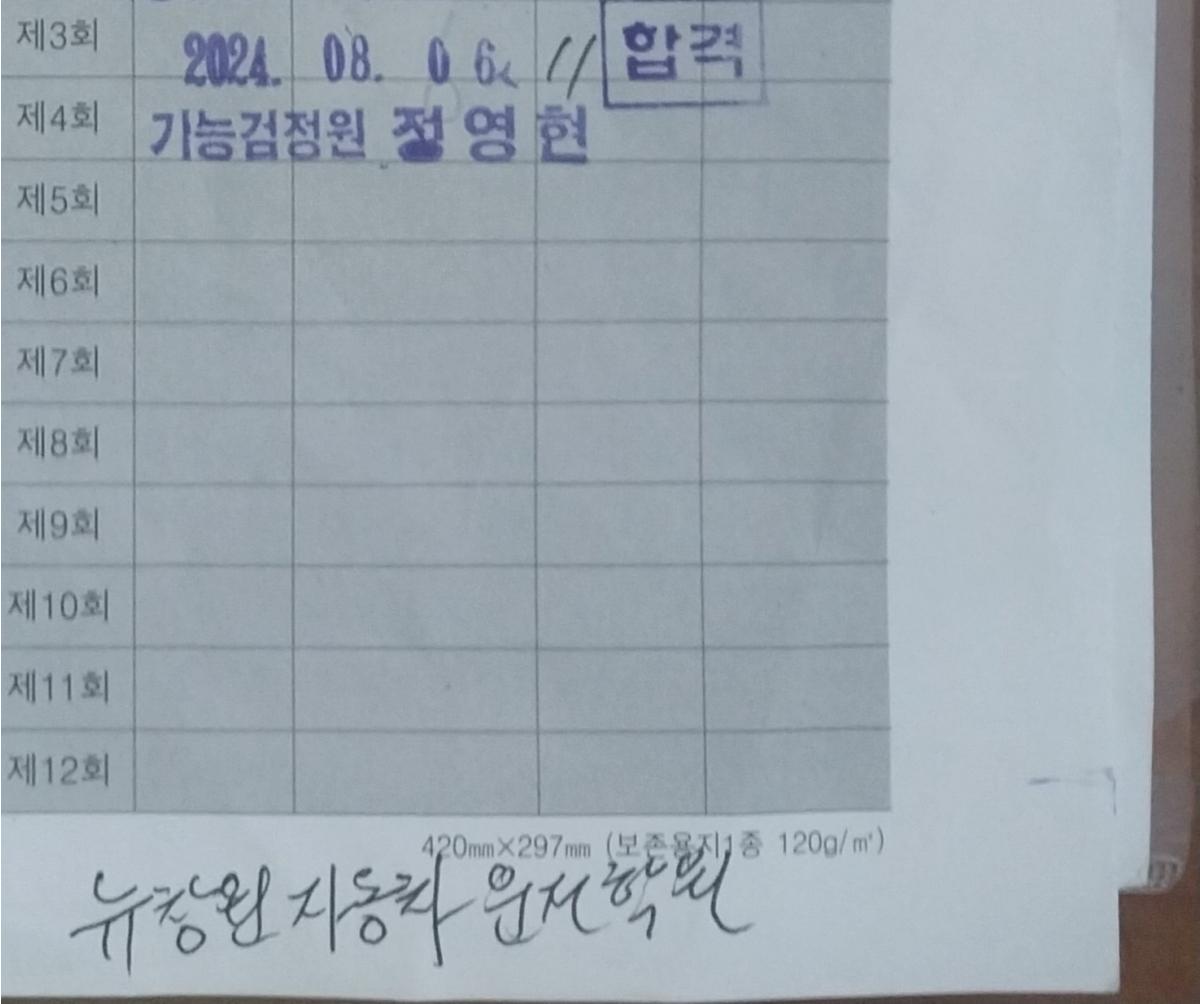 제3회 2024. 08. 06. 11 합격
제4회 기능검정원 정영현
제5회
제6회
제7회
제8회
제9회
제10회
제11회
제12회
420㎜×297㎜ (보존용지1종 120g/㎡)
뉴창원 자동차 운전학원